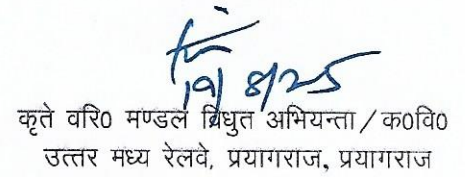 19/8/25
कृते वरि0 मण्डल विधुत अभियन्ता/क0वि0
उत्तर मध्य रेलवे, प्रयागराज, प्रयागराज